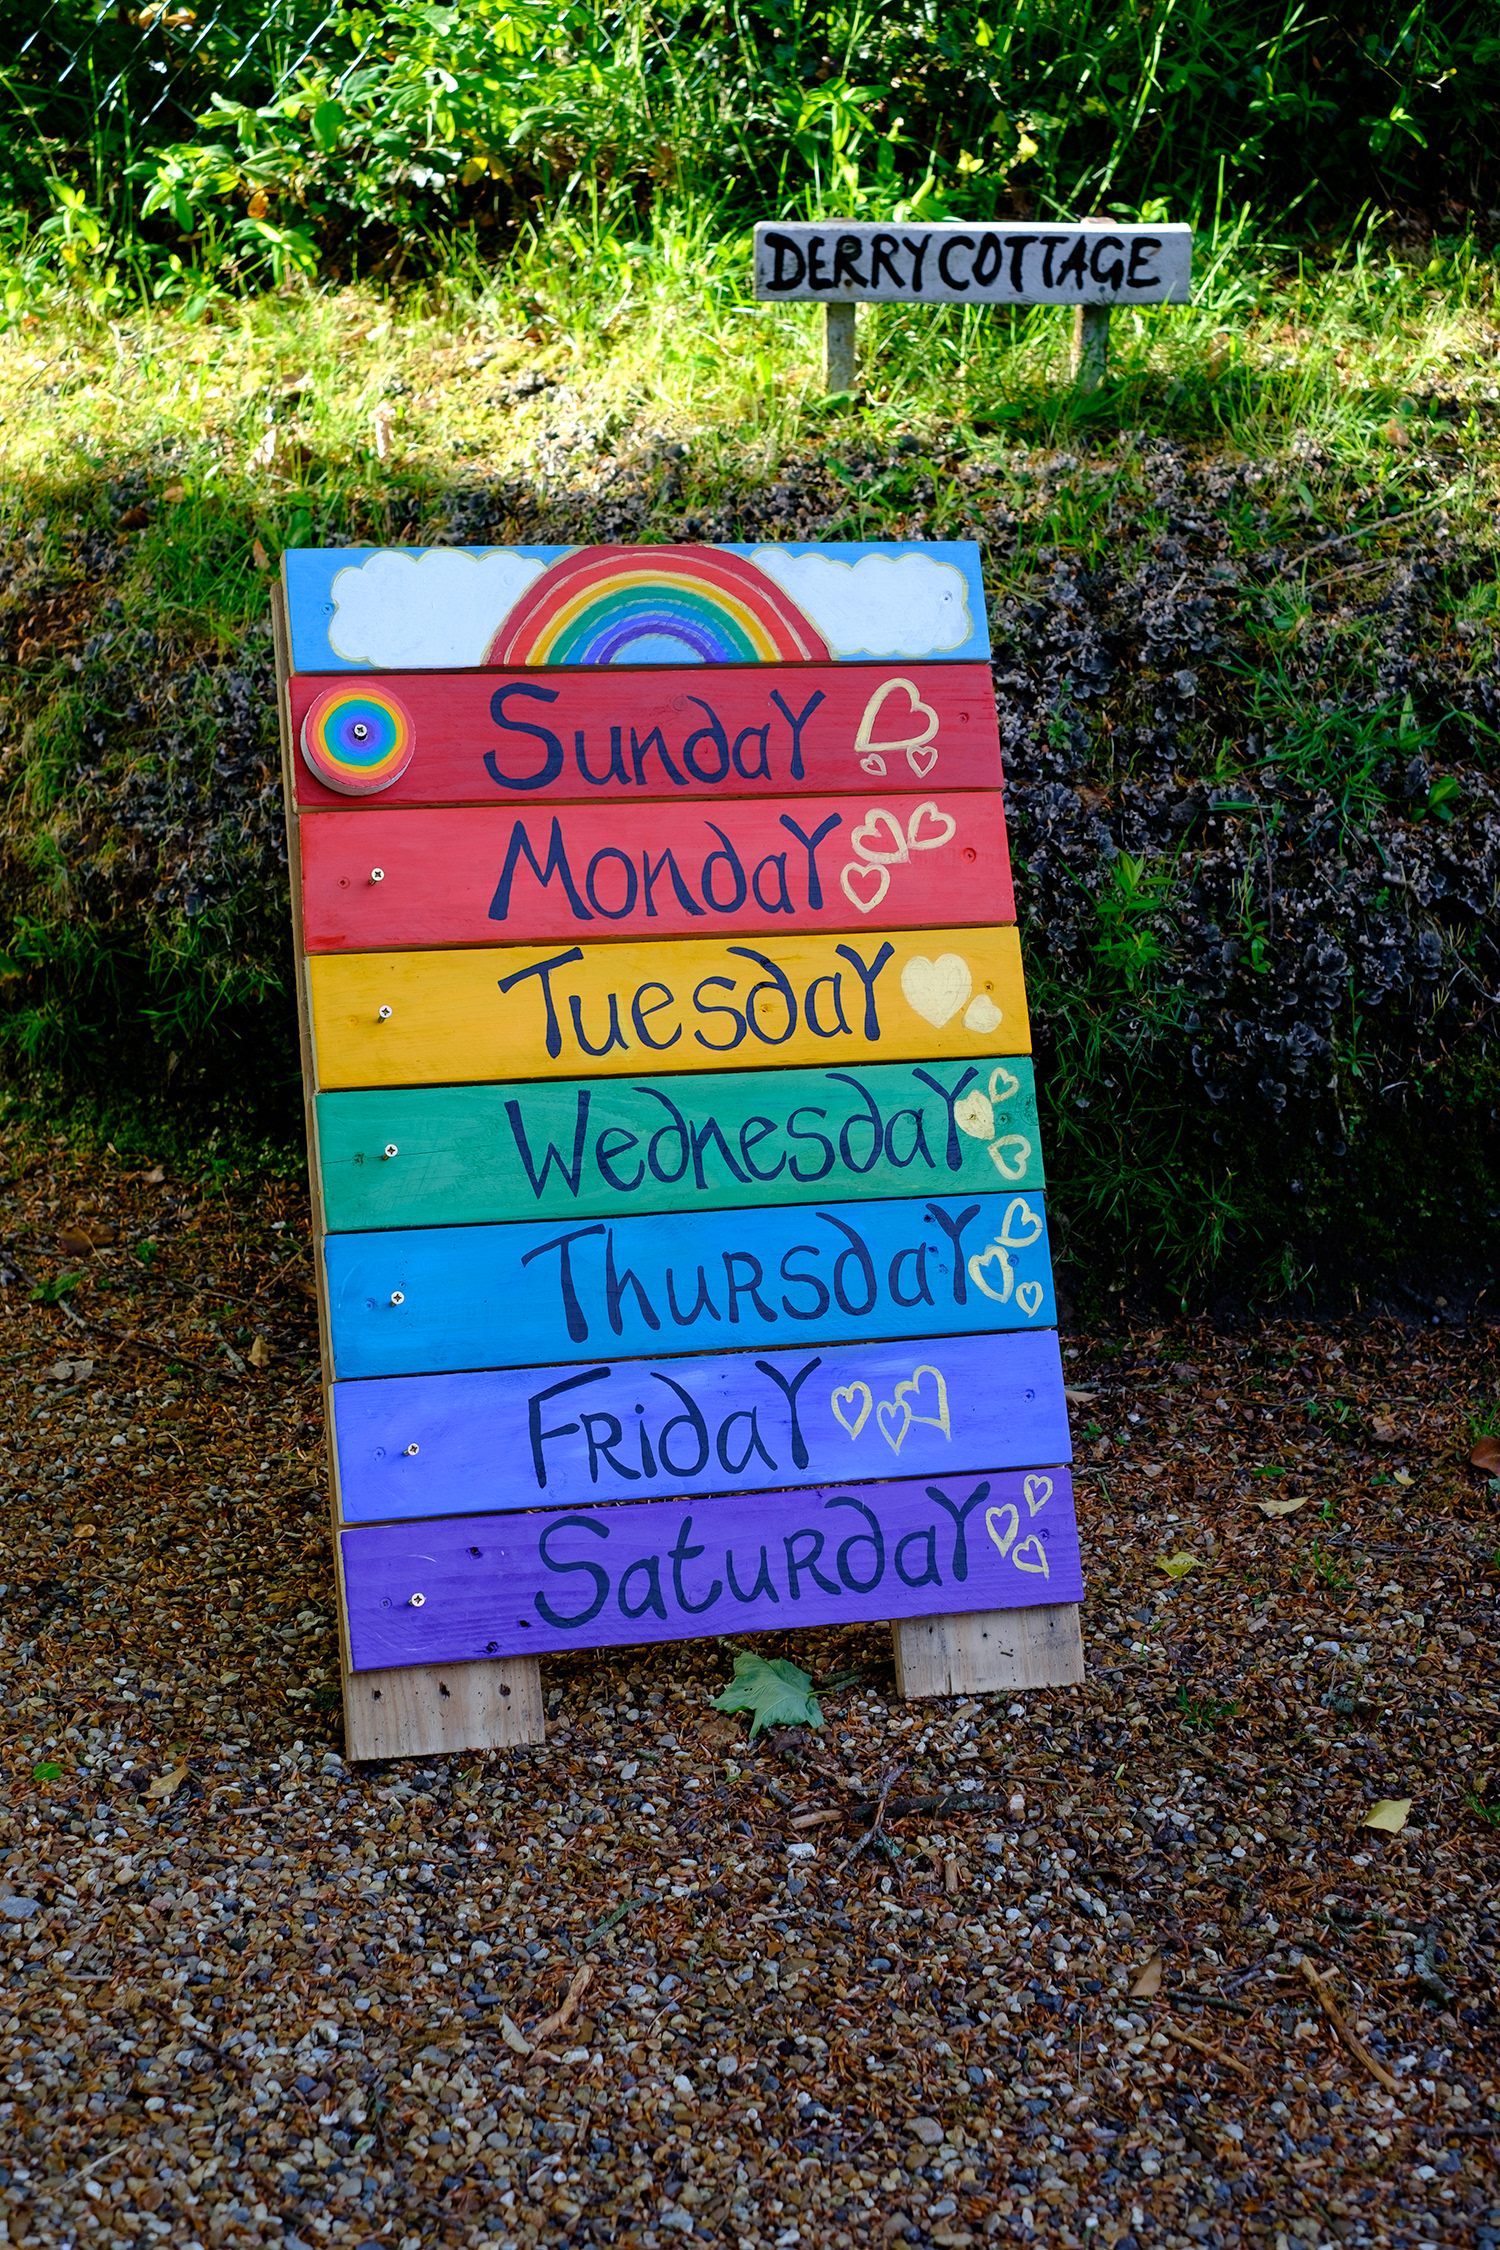 DERRY COTTAGE
Sunday
Monday
Tuesday
Wednesday
Thursday
Friday
Saturday